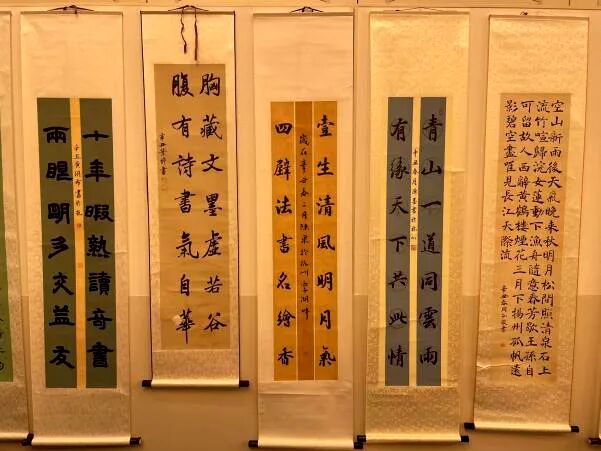 空山新雨後天氣晚來秋明月松間照清泉石上
流竹喧歸浣女蓮動下漁舟隨意春芳歇王孫自
可留故人西辭黃鶴樓煙花三月下揚州孤帆遠
影碧空盡唯見長江天際流
辛丑春月
青山一道同雲雨
辛丑春月
有緣天下共此情
壹生清風明月氣
歲在辛丑春三月
四壁法書名繪香
胸藏文墨虛若谷
腹有詩書氣自華
十年暇熟讀奇書
兩眼明多交益友